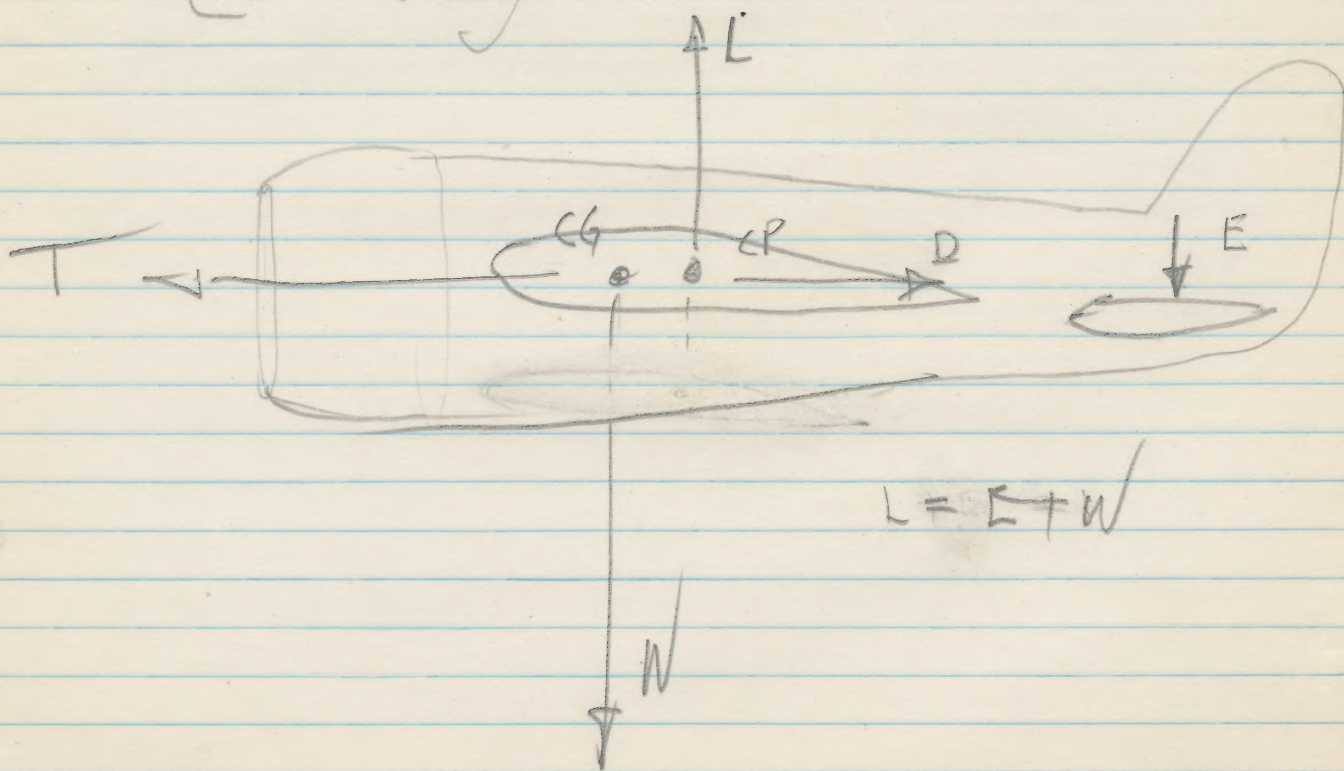 L
CG CP D E
T
L = E + W
W